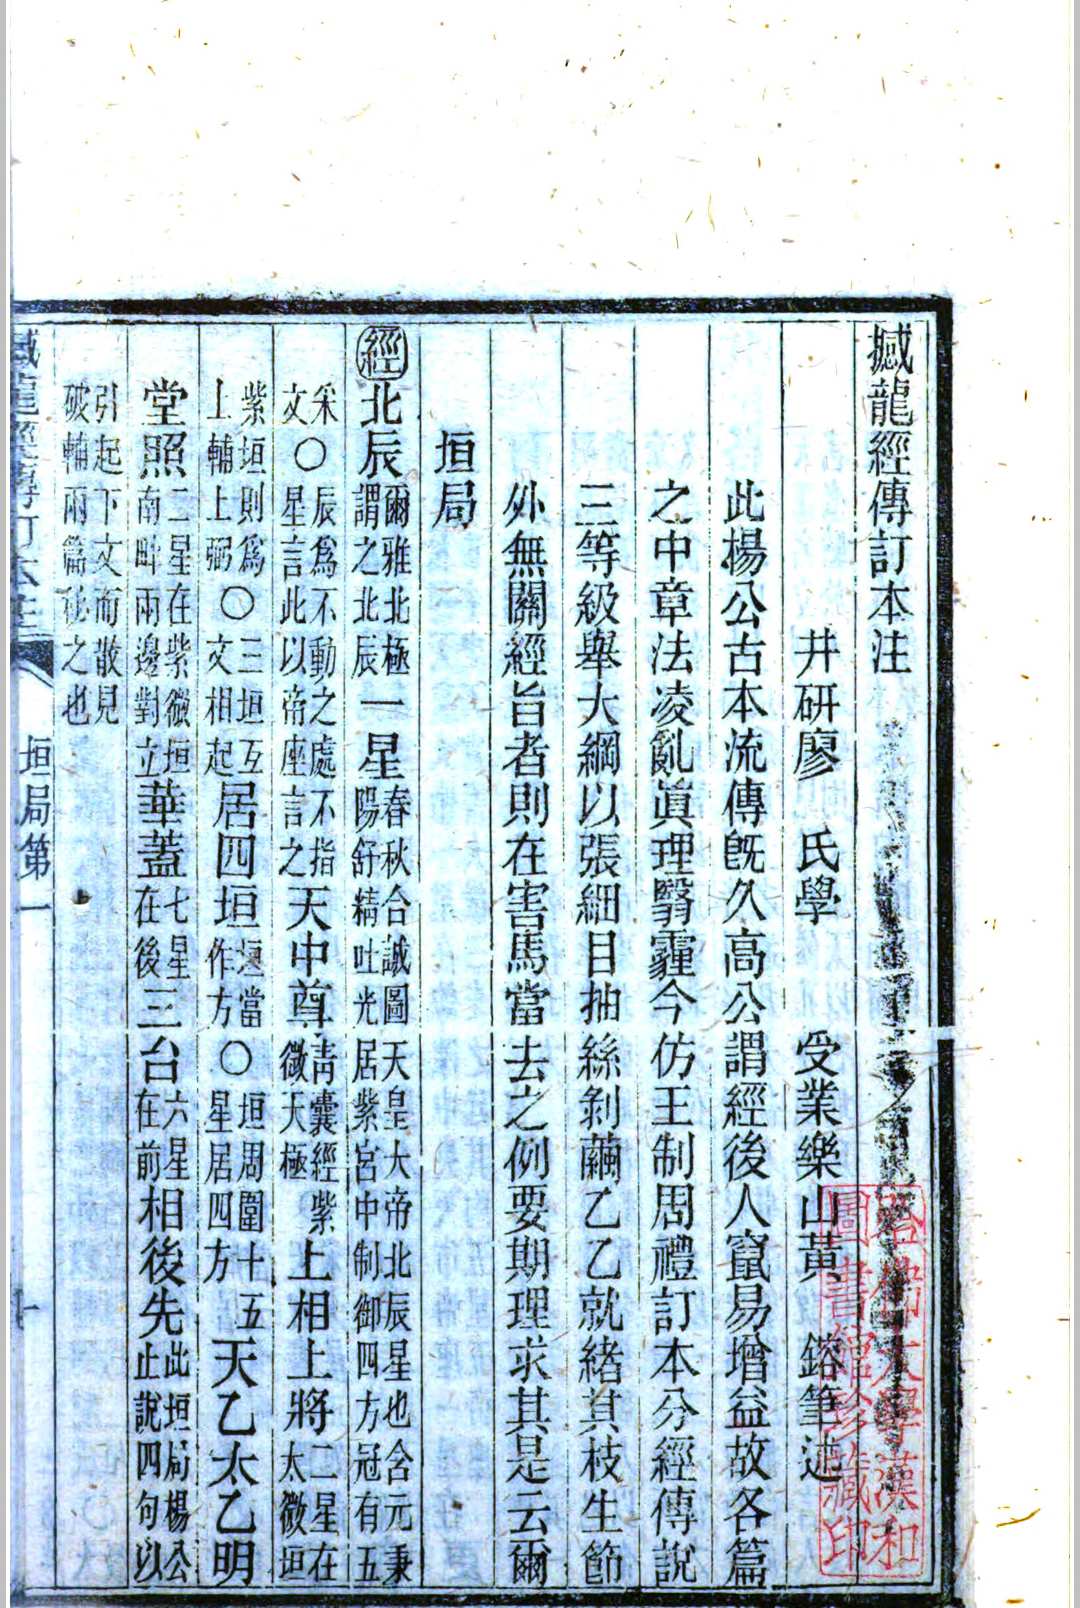 撼龍經傳訂本注
井研廖 氏學 受業樂山黃 鎔筆述
此楊公古本流傳旣久高公謂經後人竄易增益故各篇
之中章法凌亂眞理翳霾今仿王制周禮訂本分經傳說
三等級舉大綱以張細目抽絲剝繭乙乙就緒其枝生節
外無關經旨者則在害馬當去之例要期理求其是云爾
垣局
經北辰爾雅北極謂之北辰一星春秋合誠圖天皇大帝北辰星也含元秉陽舒精吐光居紫宮中制御四方冠有五
采文〇辰爲不動之處不指星言此以帝座言之天中尊靑囊經紫微天極上相上將二星在太微垣
紫垣則爲上輔上弼〇三垣互文相起居四垣垣當作方〇垣周圍十五星居四方天乙太乙明
堂照二星在紫微垣南畔兩邊對立華蓋七星在後三台六星在前相後先此垣局楊公止說四句以
引起下文而散見破輔兩篇祕之也
垣局第一
哈佛大學漢和
圖書館珍藏印